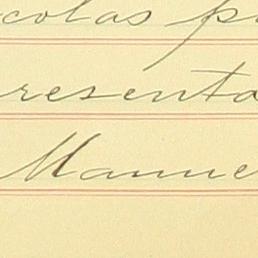 colas p
resenta
Manue